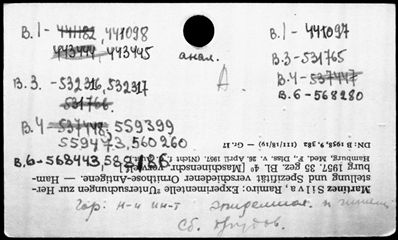 B.1 - 441182, 441098
443444, 443445
анал.
A
B.3. - 532316, 532317
531766
B.4 - 537448, 559399
559473, 560260
B.6 - 568443, 582186
B.1 - 441097
B.3 - 531765
B.4 - 537447
B.6 - 568280
Martínez Silva, Ramiro: Experimentelle "Untersuchungen zur Herstellung und Spezifität verschiedener Ornithose-Antigene. — Hamburg 1957. 35 gez. Bl. 4° [Maschinenschr. vervielf.]
Hamburg, Med. F., Diss. v. 26. April 1957. (Nicht f. d. Aust.)
DN: B 1958, 9, 382 (III/18) — Gr. 17
Гор: Н-и ин-т эпидемиол. и гигиены
Сб. трудов.